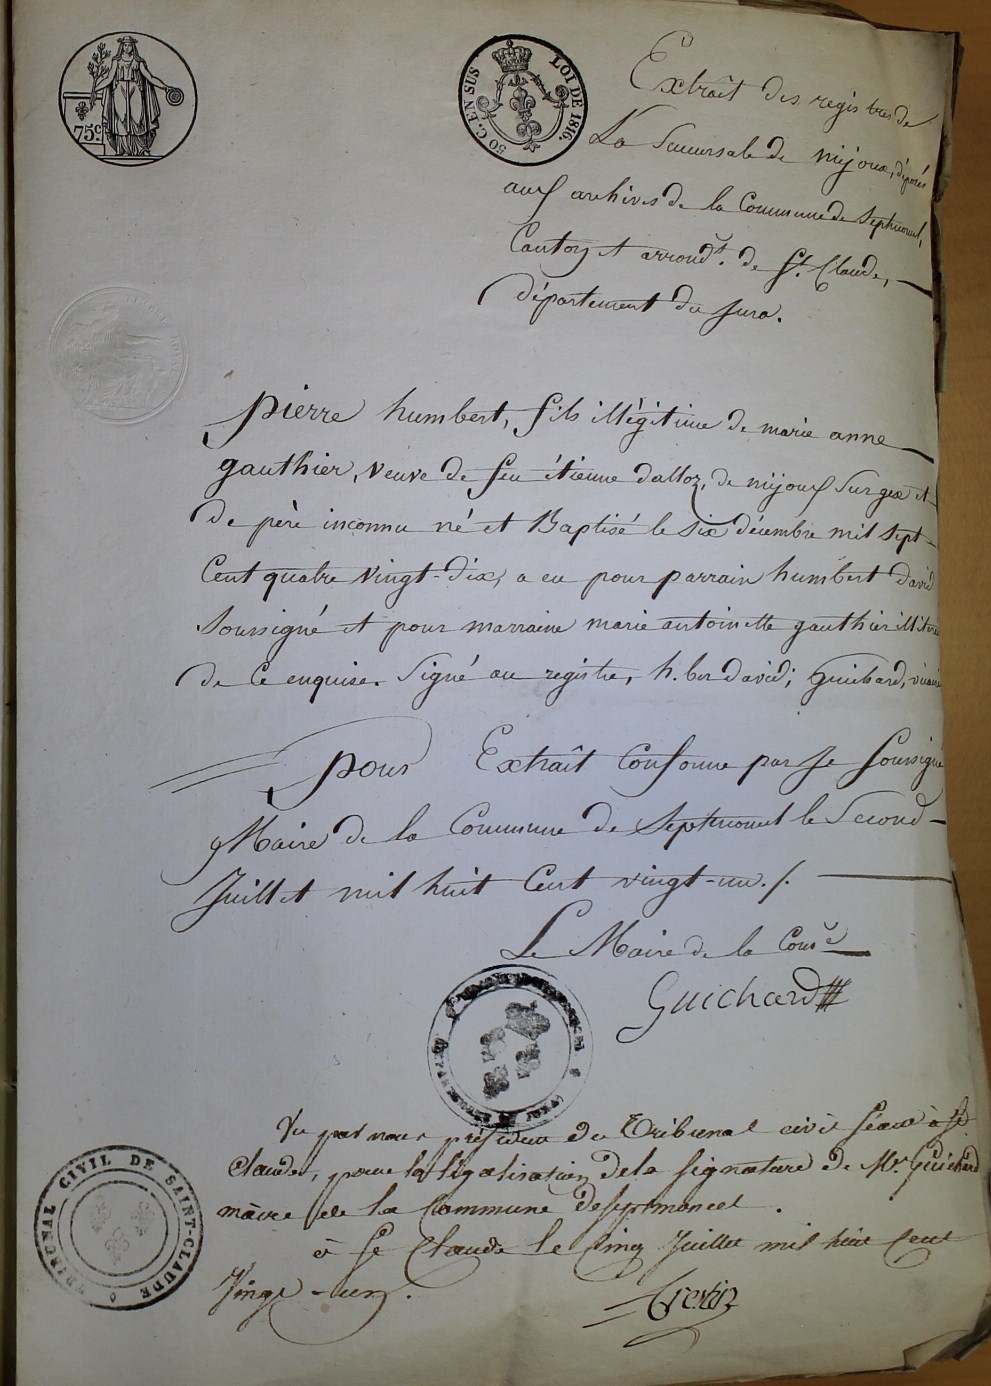 75c
50 C. EN SUS
LOI DE 1816.
Extrait des registres de
La Succursale de mijoux, déposés
aux archives de la Commune de Septmoncel,
Canton et arrondt. de St. Claude,
département du Jura.
pierre humbert, fils illégitime de marie anne
gauthier, veuve de feu étienne dalloz, de mijoux sur gex et
de père inconnu né et Baptisé le six décembre mil sept
Cent quatre vingt-dix, a eu pour parrain humbert david
soussigné et pour marraine marie antoinette gauthier illitérée
de ce enquise. Signé au registre, h. ber david; Guichard, vicaire
pour Extrait Conforme par Je Soussigné
Maire de la Commune de Septmoncel le Second
Juillet mil huit Cent vingt-un./.
Le Maire de la Come
Guichard
Vu par nous président du Tribunal civil séant à St
Claude, pour la légalisation de la signature de Mr. Guichard
maire de la Commune de Septmoncel.
à St Claude le Cinq Juillet mil huit Cent
Vingt-un.
TRIBUNAL CIVIL DE SAINT-CLAUDE